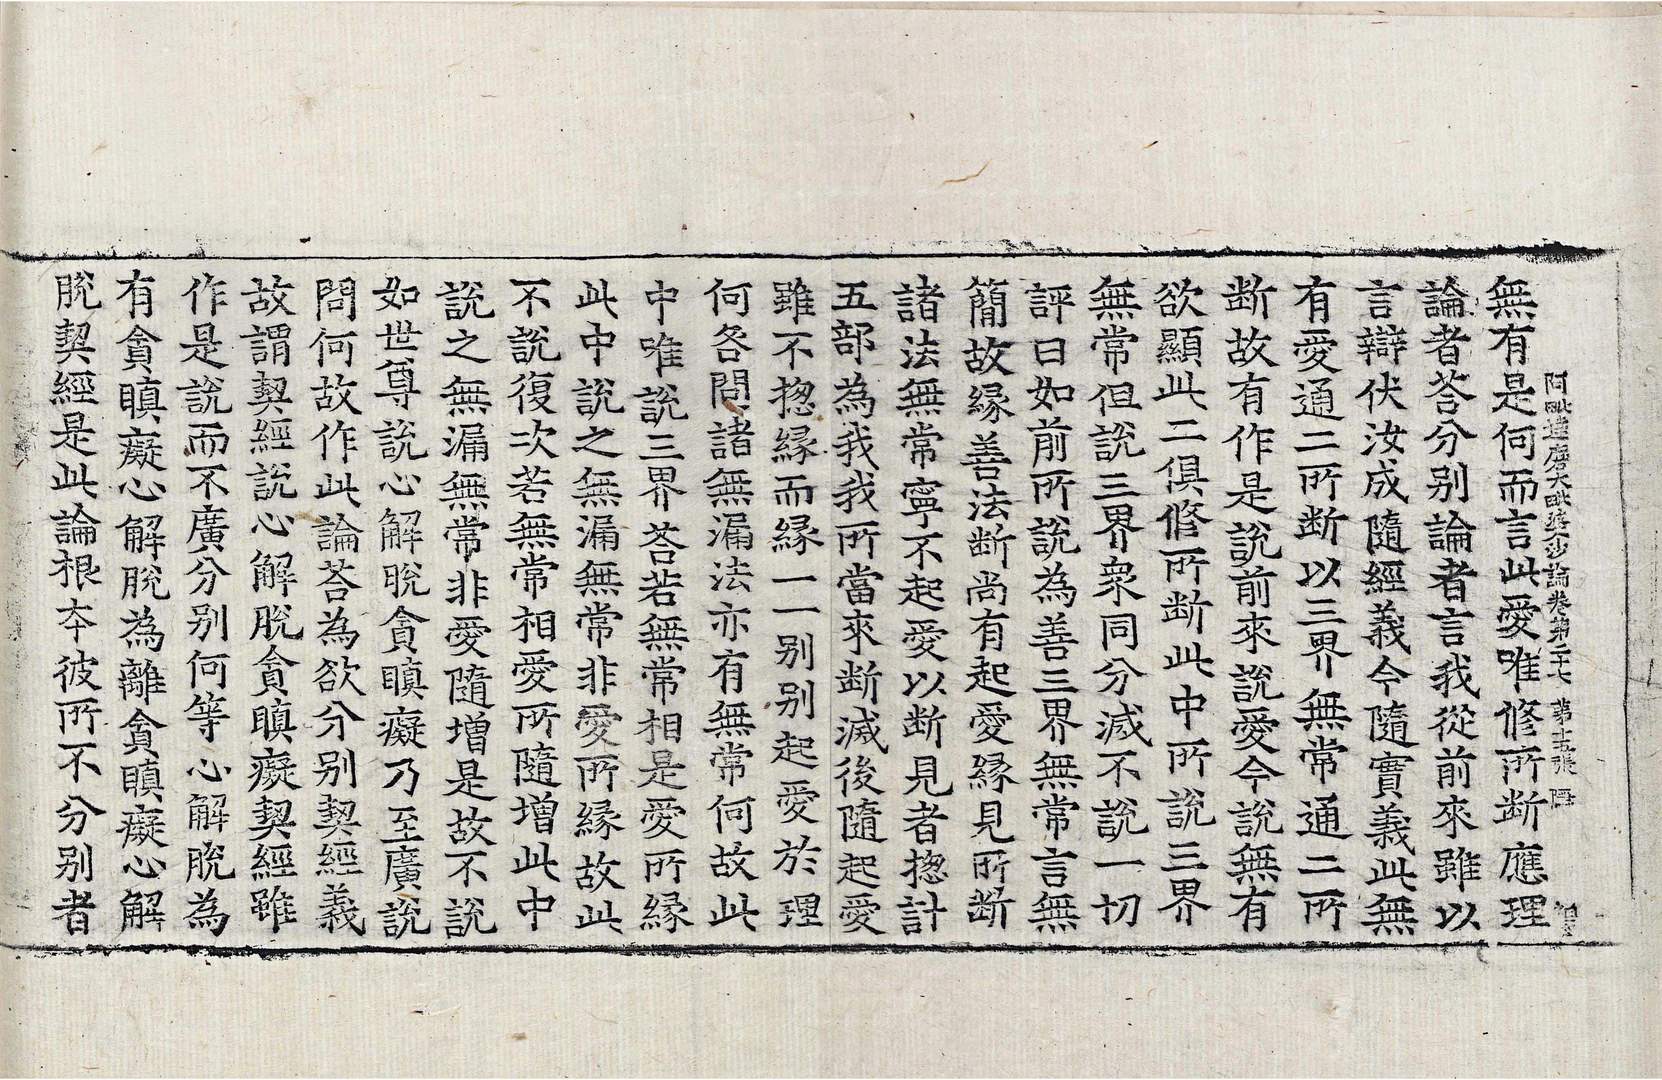 阿毗達磨大毗婆沙論卷第二十七 第十五張 陛
無有是何而言此愛唯修所断應理
論者荅分别論者言我從前來雖以
言辯伏汝成隨經義今隨實義此無
有愛通二所断以三界無常通二所
断故有作是説前來説愛今説無有
欲顯此二俱修所断此中所説三界
無常但説三界衆同分滅不説一切
評曰如前所説為善三界無常言無
簡故緣善法断尚有起愛緣見所断
諸法無常寧不起愛以断見者揔計
五部為我我所當來断滅後隨起愛
雖不揔緣而緣一一别别起愛於理
何咎問諸無漏法亦有無常何故此
中唯説三界荅若無常相是愛所緣
此中説之無漏無常非愛所緣故此
不説復次若無常相愛所隨增此中
説之無漏無常非愛隨增是故不説
如世尊説心解脫貪瞋癡乃至廣説
問何故作此論荅為欲分别契經義
故謂契經説心解脫貪瞋癡契經雖
作是説而不廣分别何等心解脫為
有貪瞋癡心解脫為離貪瞋癡心解
脫契經是此論根夲彼所不分别者